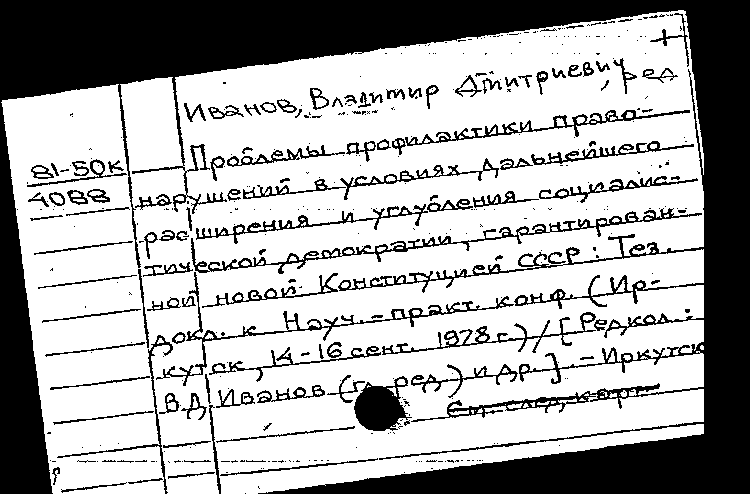 +
Иванов, Владимир Дмитриевич, ред
81-50к
4088
Проблемы профилактики право-
нарушений в условиях дальнейшего
расширения и углубления социалис-
тической демократии, гарантирован-
ной новой Конституцией СССР: Тез.
докл. к Науч.-практ. конф. (Ир-
кутск, 14-16 сент. 1978 г.) / [Редкол.:
В.Д. Иванов (гл. ред.) и др.]. - Иркутск
См. след. карт